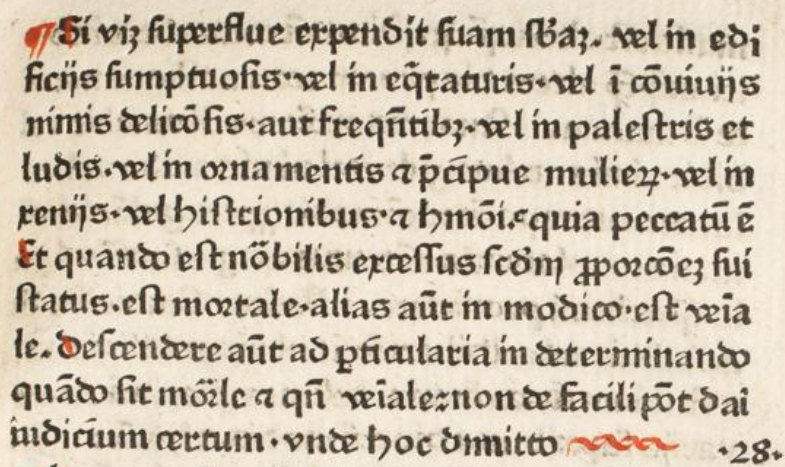 ¶Si viꝫ superflue expendit suam sb̄aꝫ. vel in edi
ficijs sumptuosis·vel in eq̄taturis·vel ī cōuiuijs
nimis delicōsis·aut freqn̄tibꝫ·vel in palestris et
ludis.vel in ornamentis ⁊ p̄cipue mulieꝝ·vel in
xenijs·vel histrionibus·⁊ hmōi.quia peccatū ē
Et quando est nōbilis excessus scd̄m ꝓporcōeꝫ sui
status.est mortale·alias aūt in modico·est veīa
le. Descendere aūt ad ꝑticularia in determinando
quādo sit mōrle ⁊ qn̄ veīale:non de facili pōt dai
iudicium certum·vnde hoc dmitto ·28·